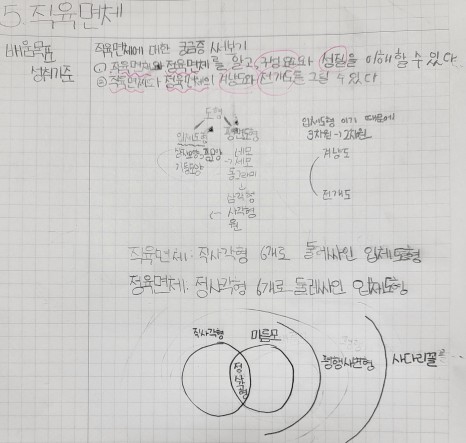 5. 직육면체
배움목표
성취기준
직육면체에 대한 궁금증 써보기
① 직육면체와 정육면체를 알고 구성요소와 성질을 이해할 수 있다
② 직육면체와 정육면체의 겨냥도와 전개도를 그릴 수 있다
도형
입체도형 평면도형
기둥모양
세모
네모
동그라미
삼각형
사각형
원
입체도형 이기 때문에
3차원→2차원
겨냥도
전개도
직육면체: 직사각형 6개로 둘레싸인 입체도형
정육면체: 정사각형 6개로 둘레싸인 입체도형
직사각형
마름모
정사각형
평행사변형
사다리꼴